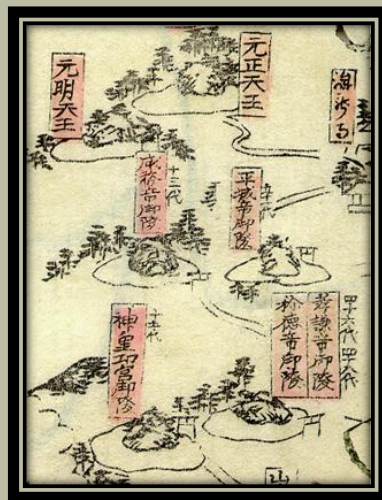 元正天王
元明天王
海龍王
十三代
成務帝御陵
平城帝御陵
四十六代 四十八代
孝謙帝御陵
称德帝御陵
十五代
神皇功宮御陵